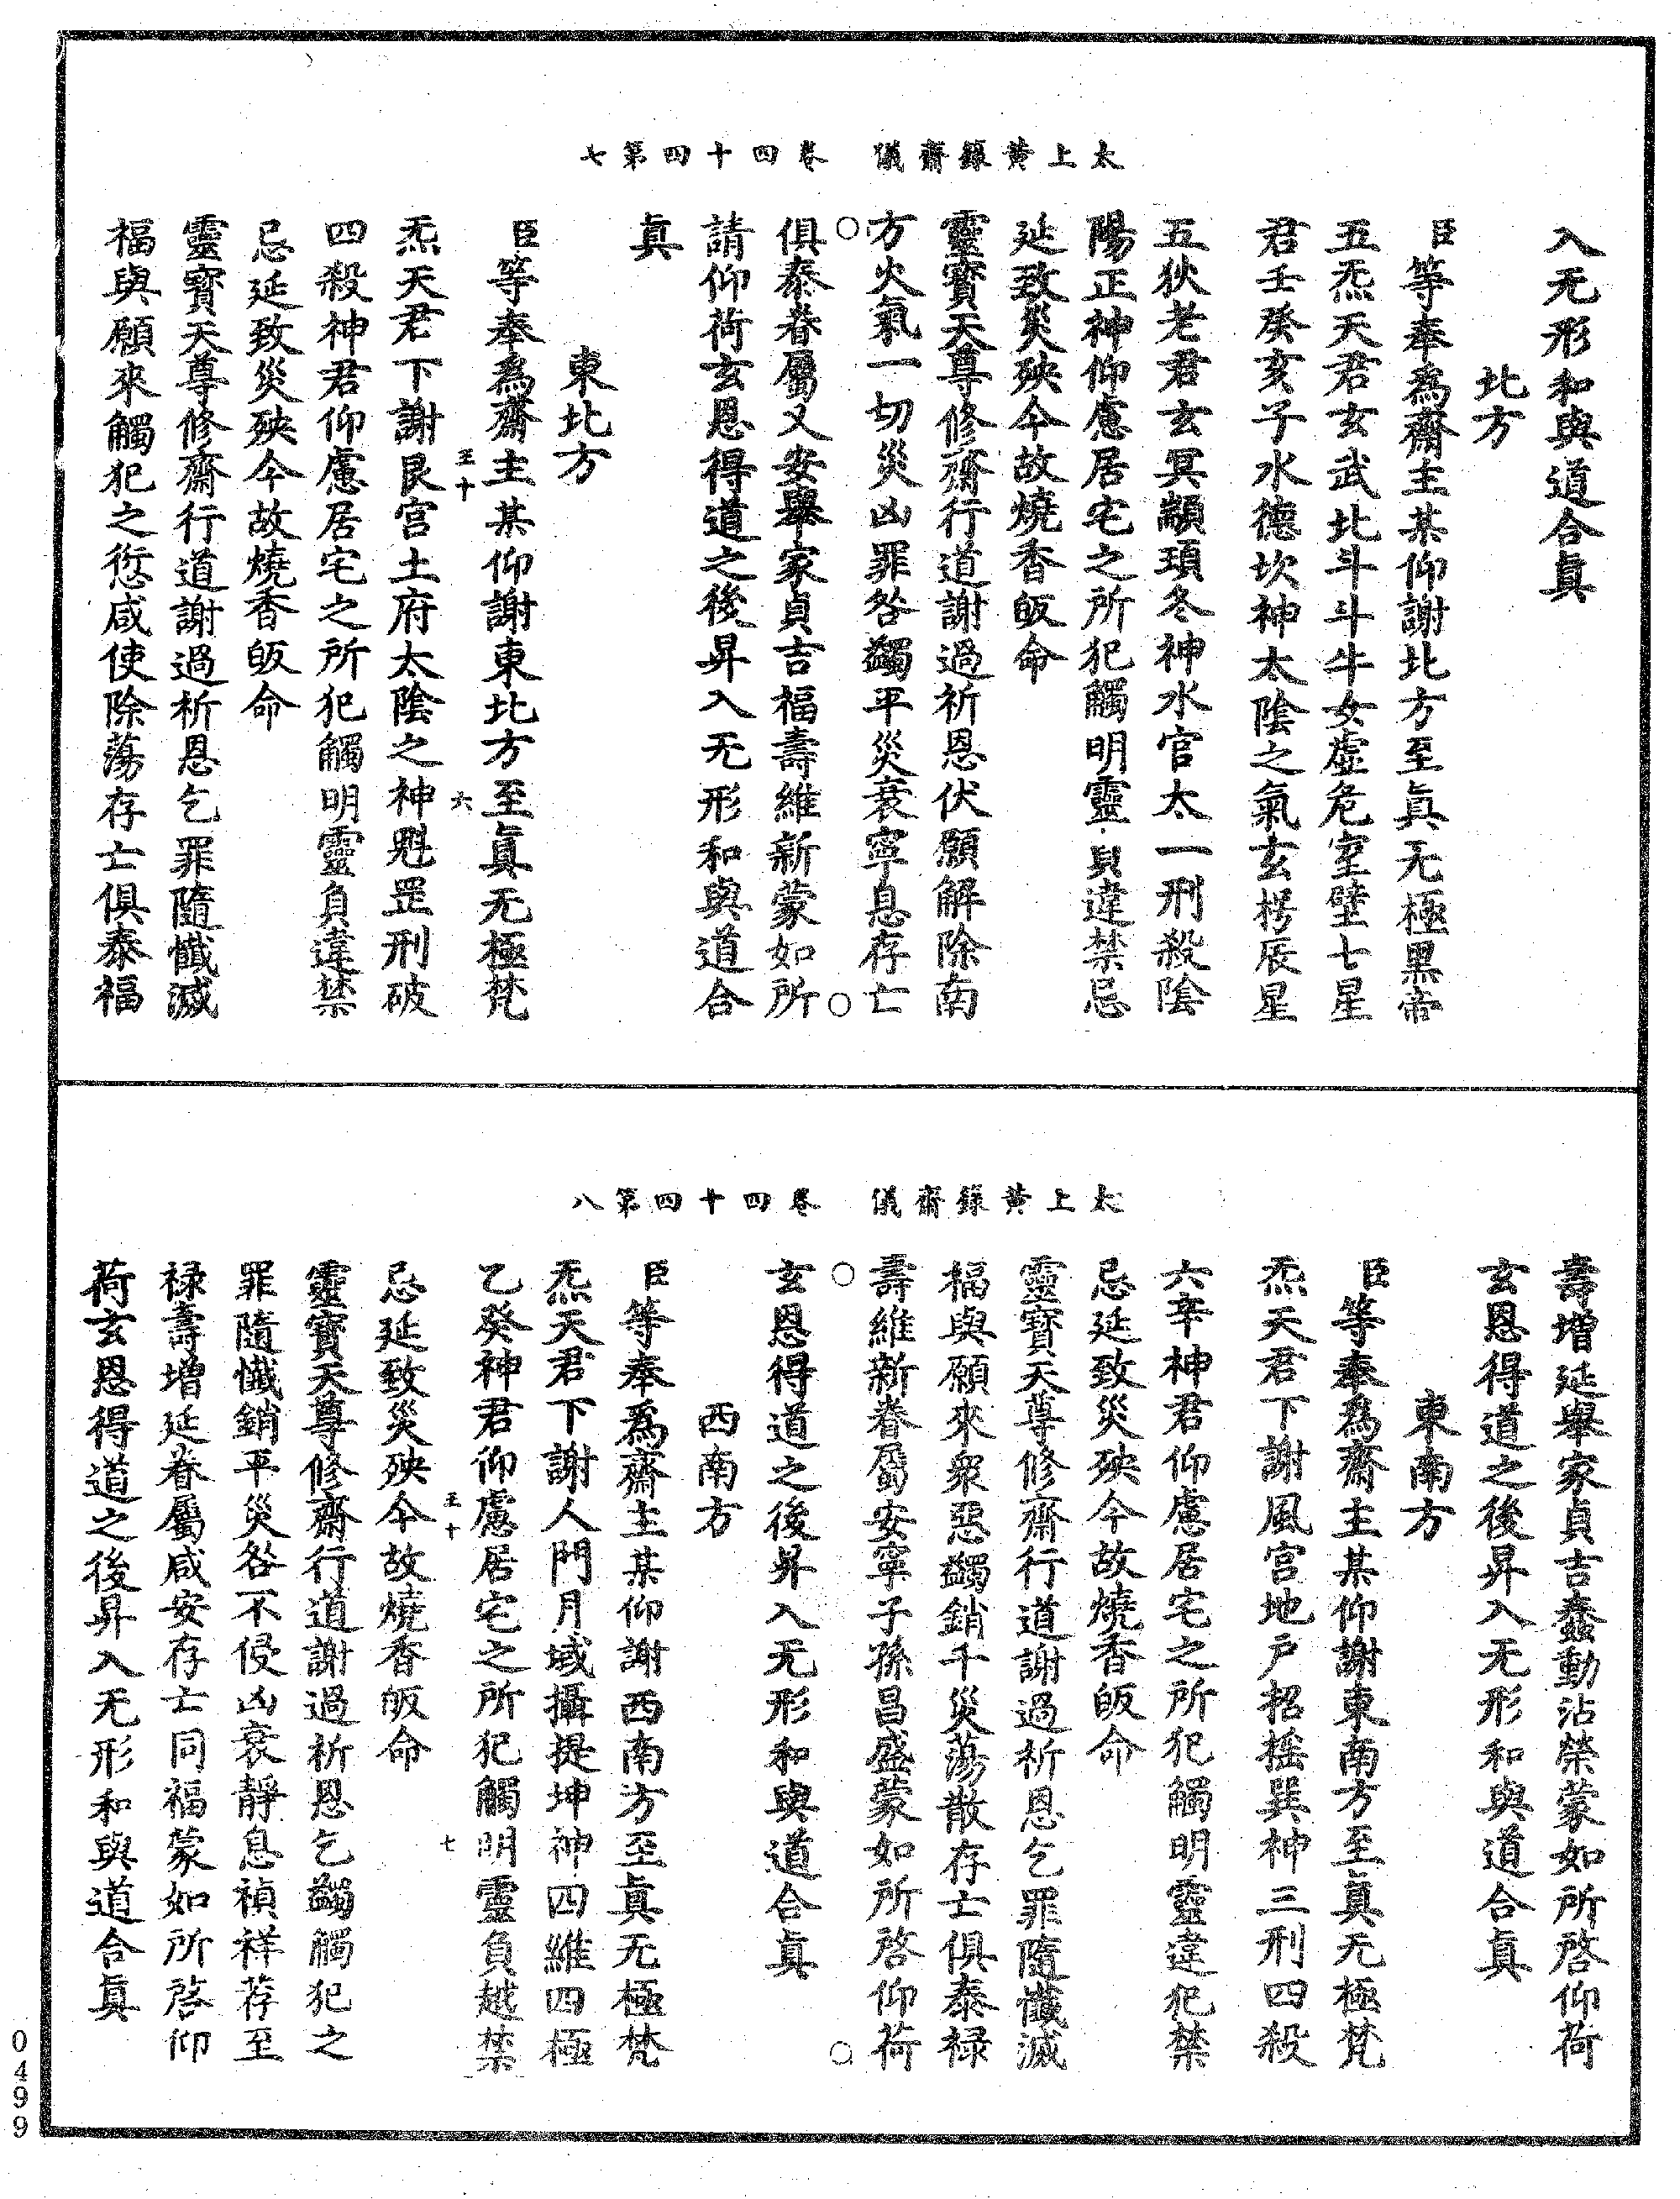 太上黃籙齋儀　卷四十四第七
入无形和與道合眞
北方
臣等奉爲齋主某仰謝北方至眞无極黑帝
五炁天君玄武北斗斗牛女虛危室壁七星
君壬癸亥子水德坎神太陰之氣玄枵辰星
五狄老君玄冥顓頊冬神水官太一刑殺陰
陽正神仰慮居宅之所犯觸明靈負違禁忌
延致災殃今故燒香皈命
靈寶天尊修齋行道謝過祈恩伏願解除南
方火氣一切災凶罪咎蠲平災衰寧息存亡
俱泰眷屬乂安舉家貞吉福壽維新蒙如所
請仰荷玄恩得道之後昇入无形和與道合
眞
東北方
臣等奉爲齋主某仰謝東北方至眞无極梵
炁天君下謝艮宮土府太陰之神魁罡刑破
四殺神君仰慮居宅之所犯觸明靈負違禁
忌延致災殃今故燒香皈命
靈寶天尊修齋行道謝過祈恩乞罪隨懺滅
福與願來觸犯之愆咸使除蕩存亡俱泰福
王十　六
太上黃籙齋儀　卷四十四第八
壽增延舉家貞吉蠢動沾榮蒙如所啓仰荷
玄恩得道之後昇入无形和與道合眞
東南方
臣等奉爲齋主某仰謝東南方至眞无極梵
炁天君下謝風宮地戶招搖巽神三刑四殺
六辛神君仰慮居宅之所犯觸明靈違犯禁
忌延致災殃今故燒香皈命
靈寶天尊修齋行道謝過祈恩乞罪隨懺滅
福與願來衆惡蠲銷千災蕩散存亡俱泰祿
壽維新眷屬安寧子孫昌盛蒙如所啓仰荷
玄恩得道之後昇入无形和與道合眞
西南方
臣等奉爲齋主某仰謝西南方至眞无極梵
炁天君下謝人門月域攝提坤神四維四極
乙癸神君仰慮居宅之所犯觸明靈負越禁
忌延致災殃今故燒香皈命
靈寶天尊修齋行道謝過祈恩乞蠲觸犯之
罪隨懺銷平災咎不侵凶衰靜息禎祥荐至
祿壽增延眷屬咸安存亡同福蒙如所啓仰
荷玄恩得道之後昇入无形和與道合眞
王十　七
0499